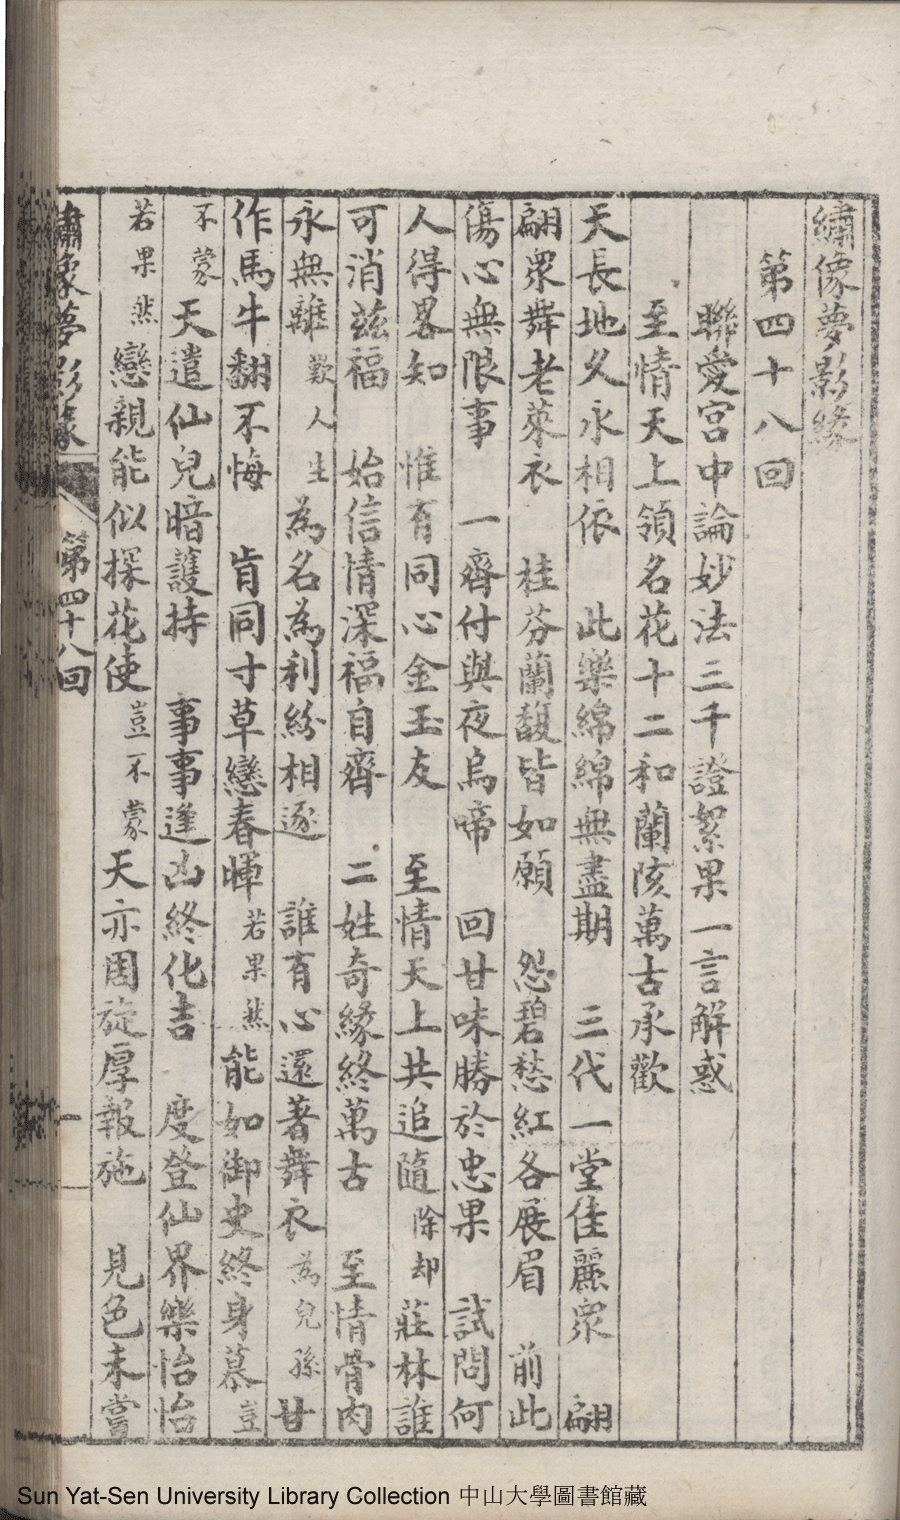 繡像夢影緣
第四十八回
聯愛宮中論妙法三千證絮果一言解惑
至情天上領名花十二和蘭陔萬古承歡
天長地久永相依　此樂綿綿無盡期　三代一堂佳麗眾　翩
翩眾舞老萊衣　桂芬蘭馥皆如願　怨碧愁紅各展眉　前此
傷心無限事　一齊付與夜烏啼　回甘味勝於忠果　試問何
人得畧知　惟有同心金玉友　至情天上共追隨　除却莊林誰
可消茲福　始信情深福自齊　二姓奇緣終萬古　至情骨肉
永無離　歎人生為名為利紛相逐　誰有心還著舞衣　為兒孫甘
作馬牛翻不悔　肯同寸草戀春暉　若果然能如御史終身慕　豈
不蒙天遣仙兒暗護持　事事逢凶終化吉　度登仙界樂怡怡
若果然戀親能似探花使　豈不蒙天亦周旋厚報施　見色未嘗
繡像夢影緣　第四十八回　一
Sun Yat-Sen University Library Collection 中山大學圖書館藏